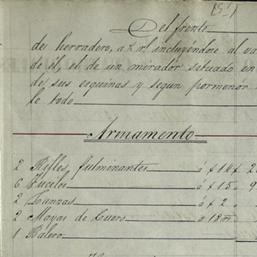 (51)
Del frente
de herradero, a 2 rs. incluyendose al va
de él, el de un mirador situado en
de sus esquinas y segun pormenor
de todo
Armamento
2 Rifles fulminantes á $14 2
6 á $15 9
2 Lanzas á $2
2 de Cuero á 18
1 Balero